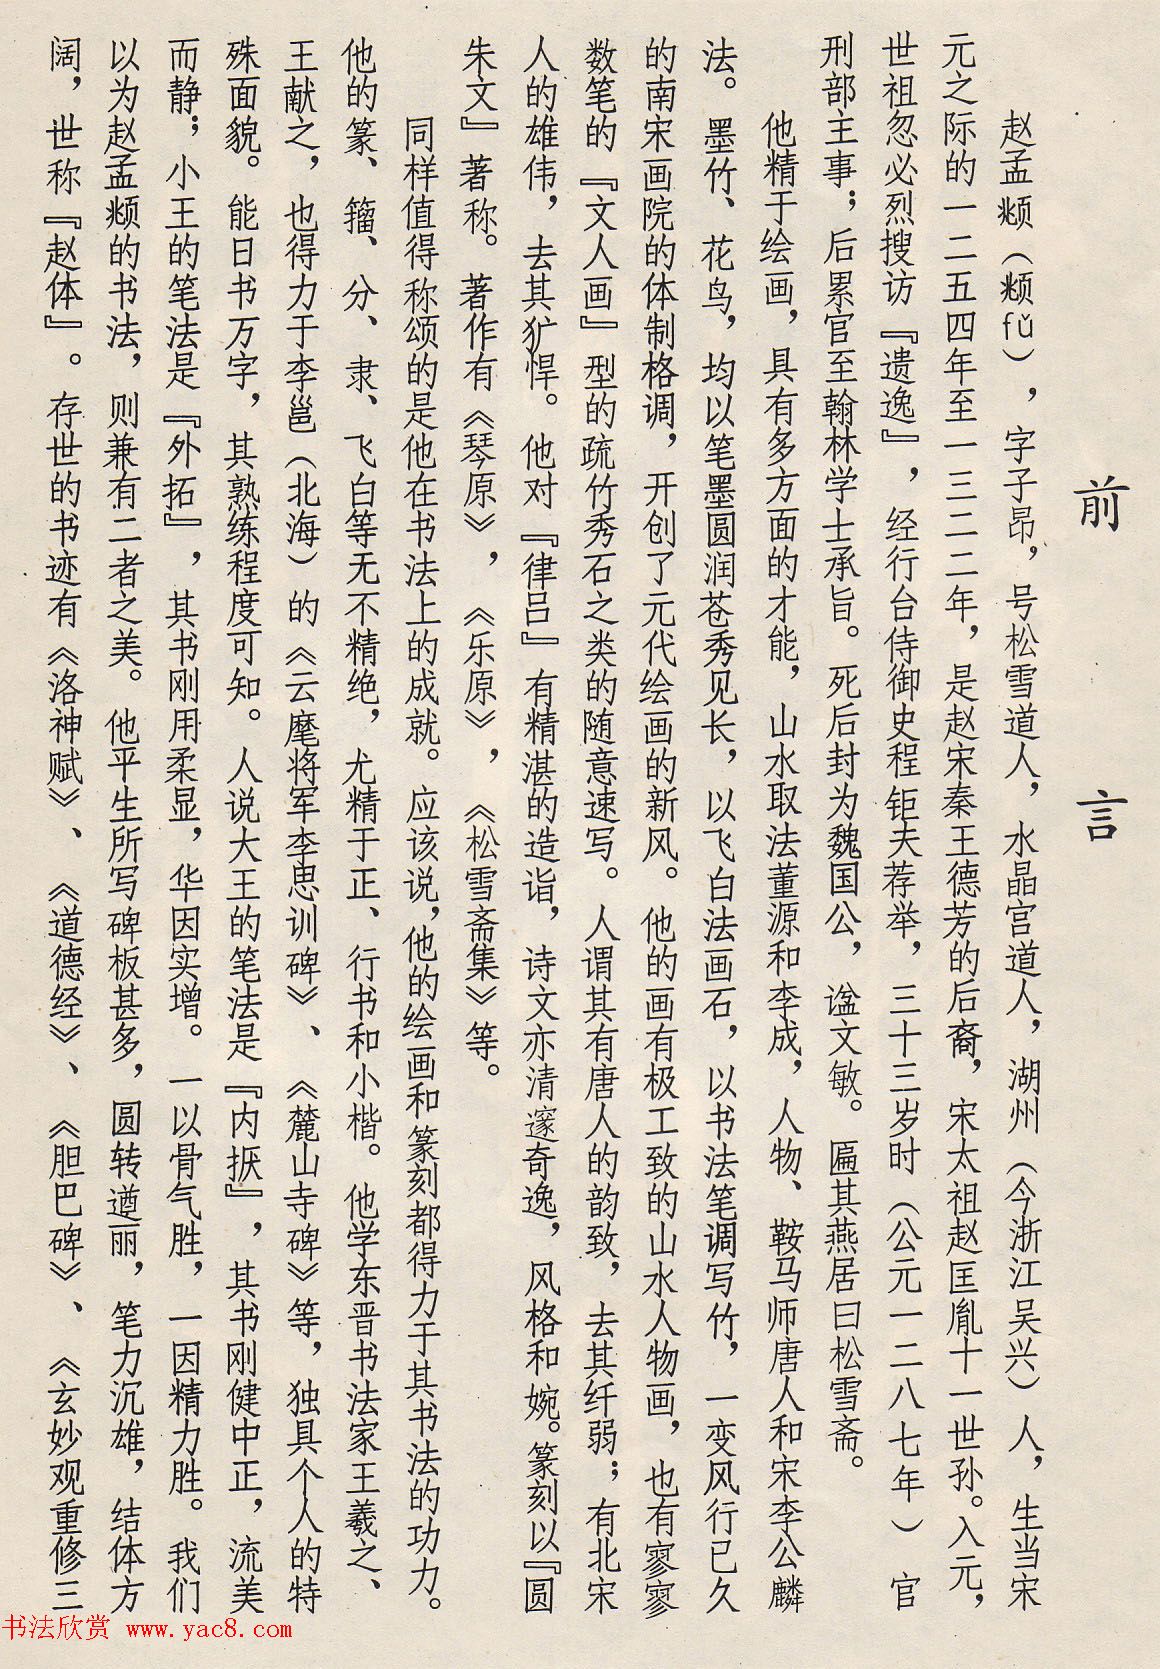 前言
赵孟頫（頫fǔ），字子昂，号松雪道人，水晶宫道人，湖州（今浙江吴兴）人，生当宋
元之际的一二五四年至一三二二年，是赵宋秦王德芳的后裔，宋太祖赵匡胤十一世孙。入元，
世祖忽必烈搜访『遗逸』，经行台侍御史程钜夫荐举，三十三岁时（公元一二八七年）官
刑部主事；后累官至翰林学士承旨。死后封为魏国公，谥文敏。匾其燕居曰松雪斋。
他精于绘画，具有多方面的才能，山水取法董源和李成，人物、鞍马师唐人和宋李公麟
法。墨竹、花鸟，均以笔墨圆润苍秀见长，以飞白法画石，以书法笔调写竹，一变风行已久
的南宋画院的体制格调，开创了元代绘画的新风。他的画有极工致的山水人物画，也有寥寥
数笔的『文人画』型的疏竹秀石之类的随意速写。人谓其有唐人的韵致，去其纤弱；有北宋
人的雄伟，去其犷悍。他对『律吕』有精湛的造诣，诗文亦清邃奇逸，风格和婉。篆刻以『圆
朱文』著称。著作有《琴原》，《乐原》，《松雪斋集》等。
同样值得称颂的是他在书法上的成就。应该说，他的绘画和篆刻都得力于其书法的功力。
他的篆、籀、分、隶、飞白等无不精绝，尤精于正、行书和小楷。他学东晋书法家王羲之、
王献之，也得力于李邕（北海）的《云麾将军李思训碑》、《麓山寺碑》等，独具个人的特
殊面貌。能日书万字，其熟练程度可知。人说大王的笔法是『内擫』，其书刚健中正，流美
而静；小王的笔法是『外拓』，其书刚用柔显，华因实增。一以骨气胜，一因精力胜。我们
以为赵孟頫的书法，则兼有二者之美。他平生所写碑板甚多，圆转遒丽，笔力沉雄，结体方
阔，世称『赵体』。存世的书迹有《洛神赋》、《道德经》、《胆巴碑》、《玄妙观重修三
书法欣赏 www.yac8.com